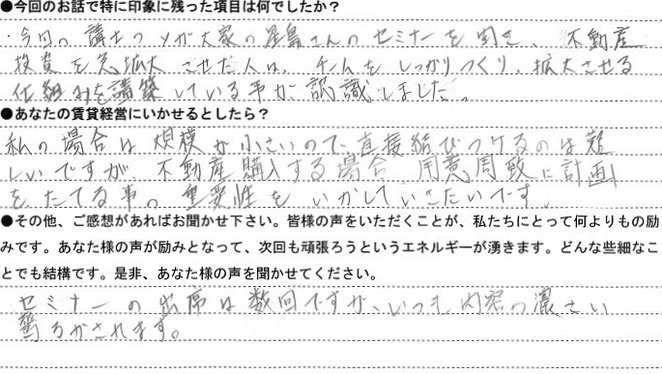 ●今回のお話で特に印象に残った項目は何でしたか?
・今回の講士のメガ大家の星島さんのセミナーを聞き、不動産
投資を急拡大させた人は、チームをしっかりつくり、拡大させる
仕組みを講築している事が認識しました。
●あなたの賃貸経営にいかせるとしたら?
私の場合は規模が小さいので、直接結びつけるのは難
しいですが、不動産購入する場合、用意周致に計画
をたてる事の重要性をいかしていきたいです。
●その他、ご感想があればお聞かせ下さい。皆様の声をいただくことが、私たちにとって何よりもの励
みです。あなた様の声が励みとなって、次回も頑張ろうというエネルギーが湧きます。どんな些細なこ
とでも結構です。是非、あなた様の声を聞かせてください。
セミナーの出席は数回ですが、いつも内容の濃さい
驚ろかされます。